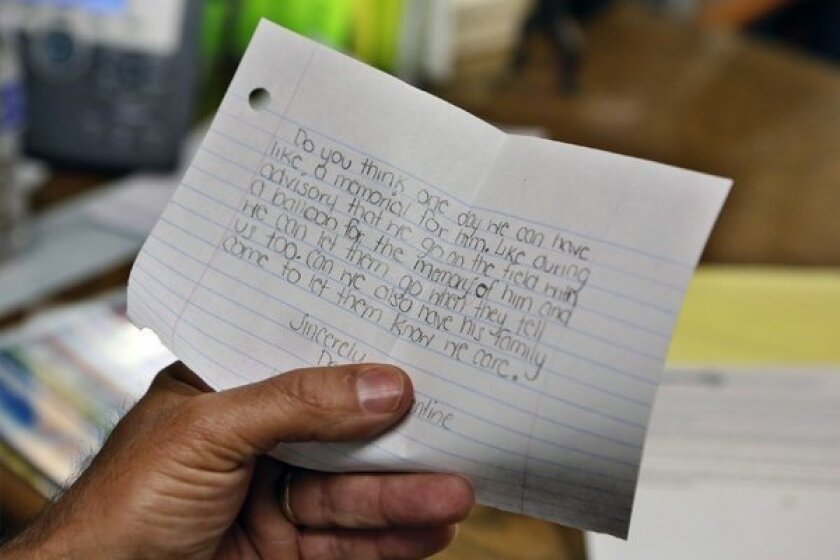 Do you think one day we can have
like a memorial for him. Like during
advisory that we go on the field with
a balloon for the memory of him and
we can let them go when they tell
us too. Can we also have his family
come to let them know we care.
Sincerely